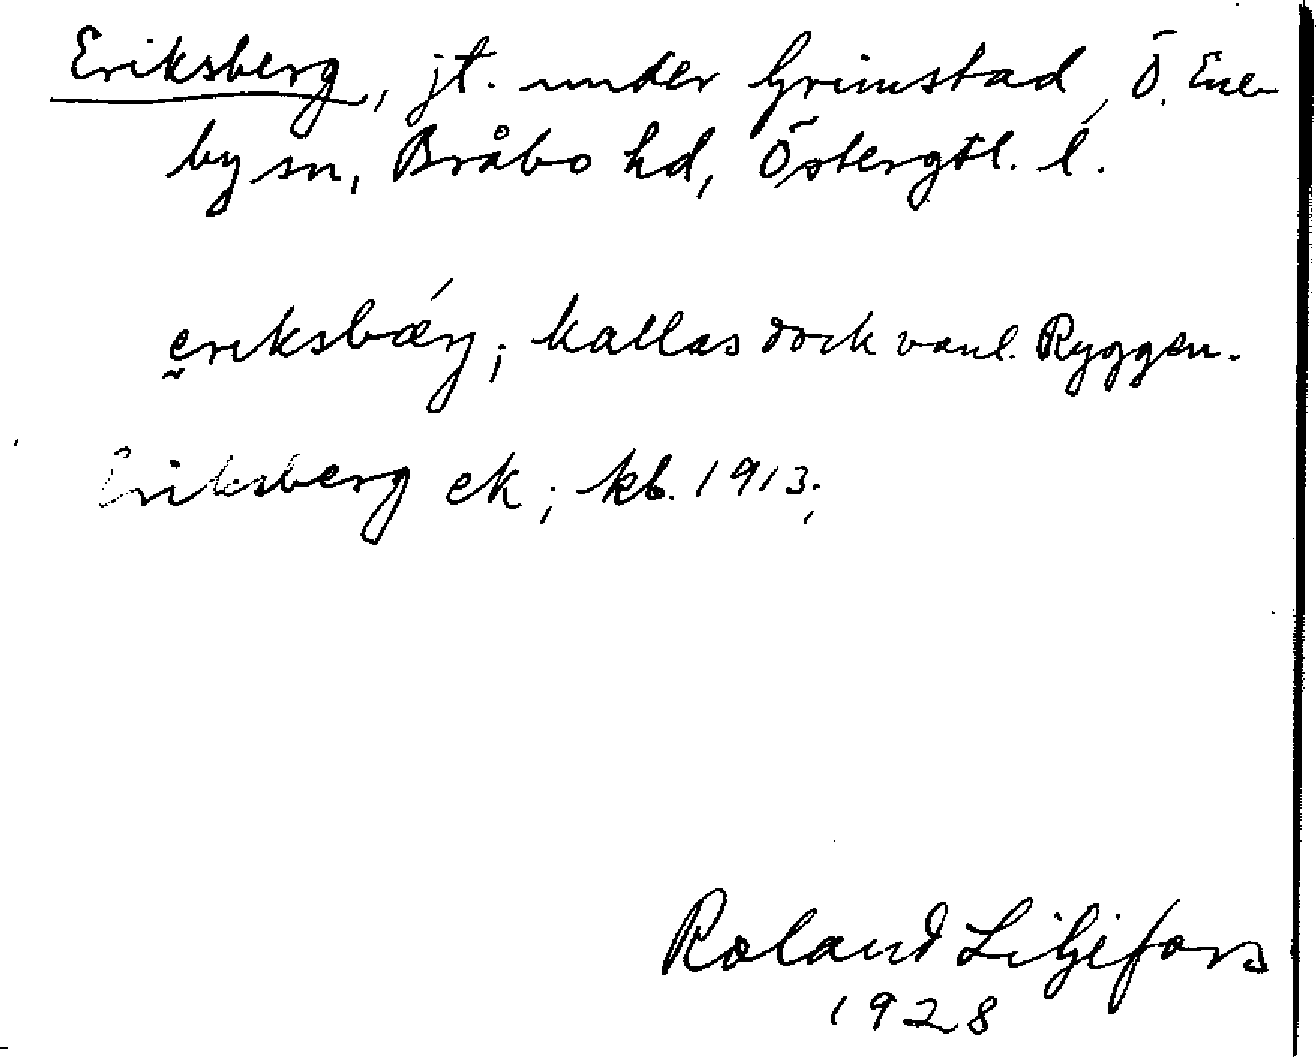 Eriksberg, jt. under Grimstad, Ö. Ene-
by sn, Bråbo hd, Östergtl. l.
eriksbǽrj; kallas dock vanl. Ryggen.
Eriksberg ek; kb. 1913;
Roland Liljefors
1928